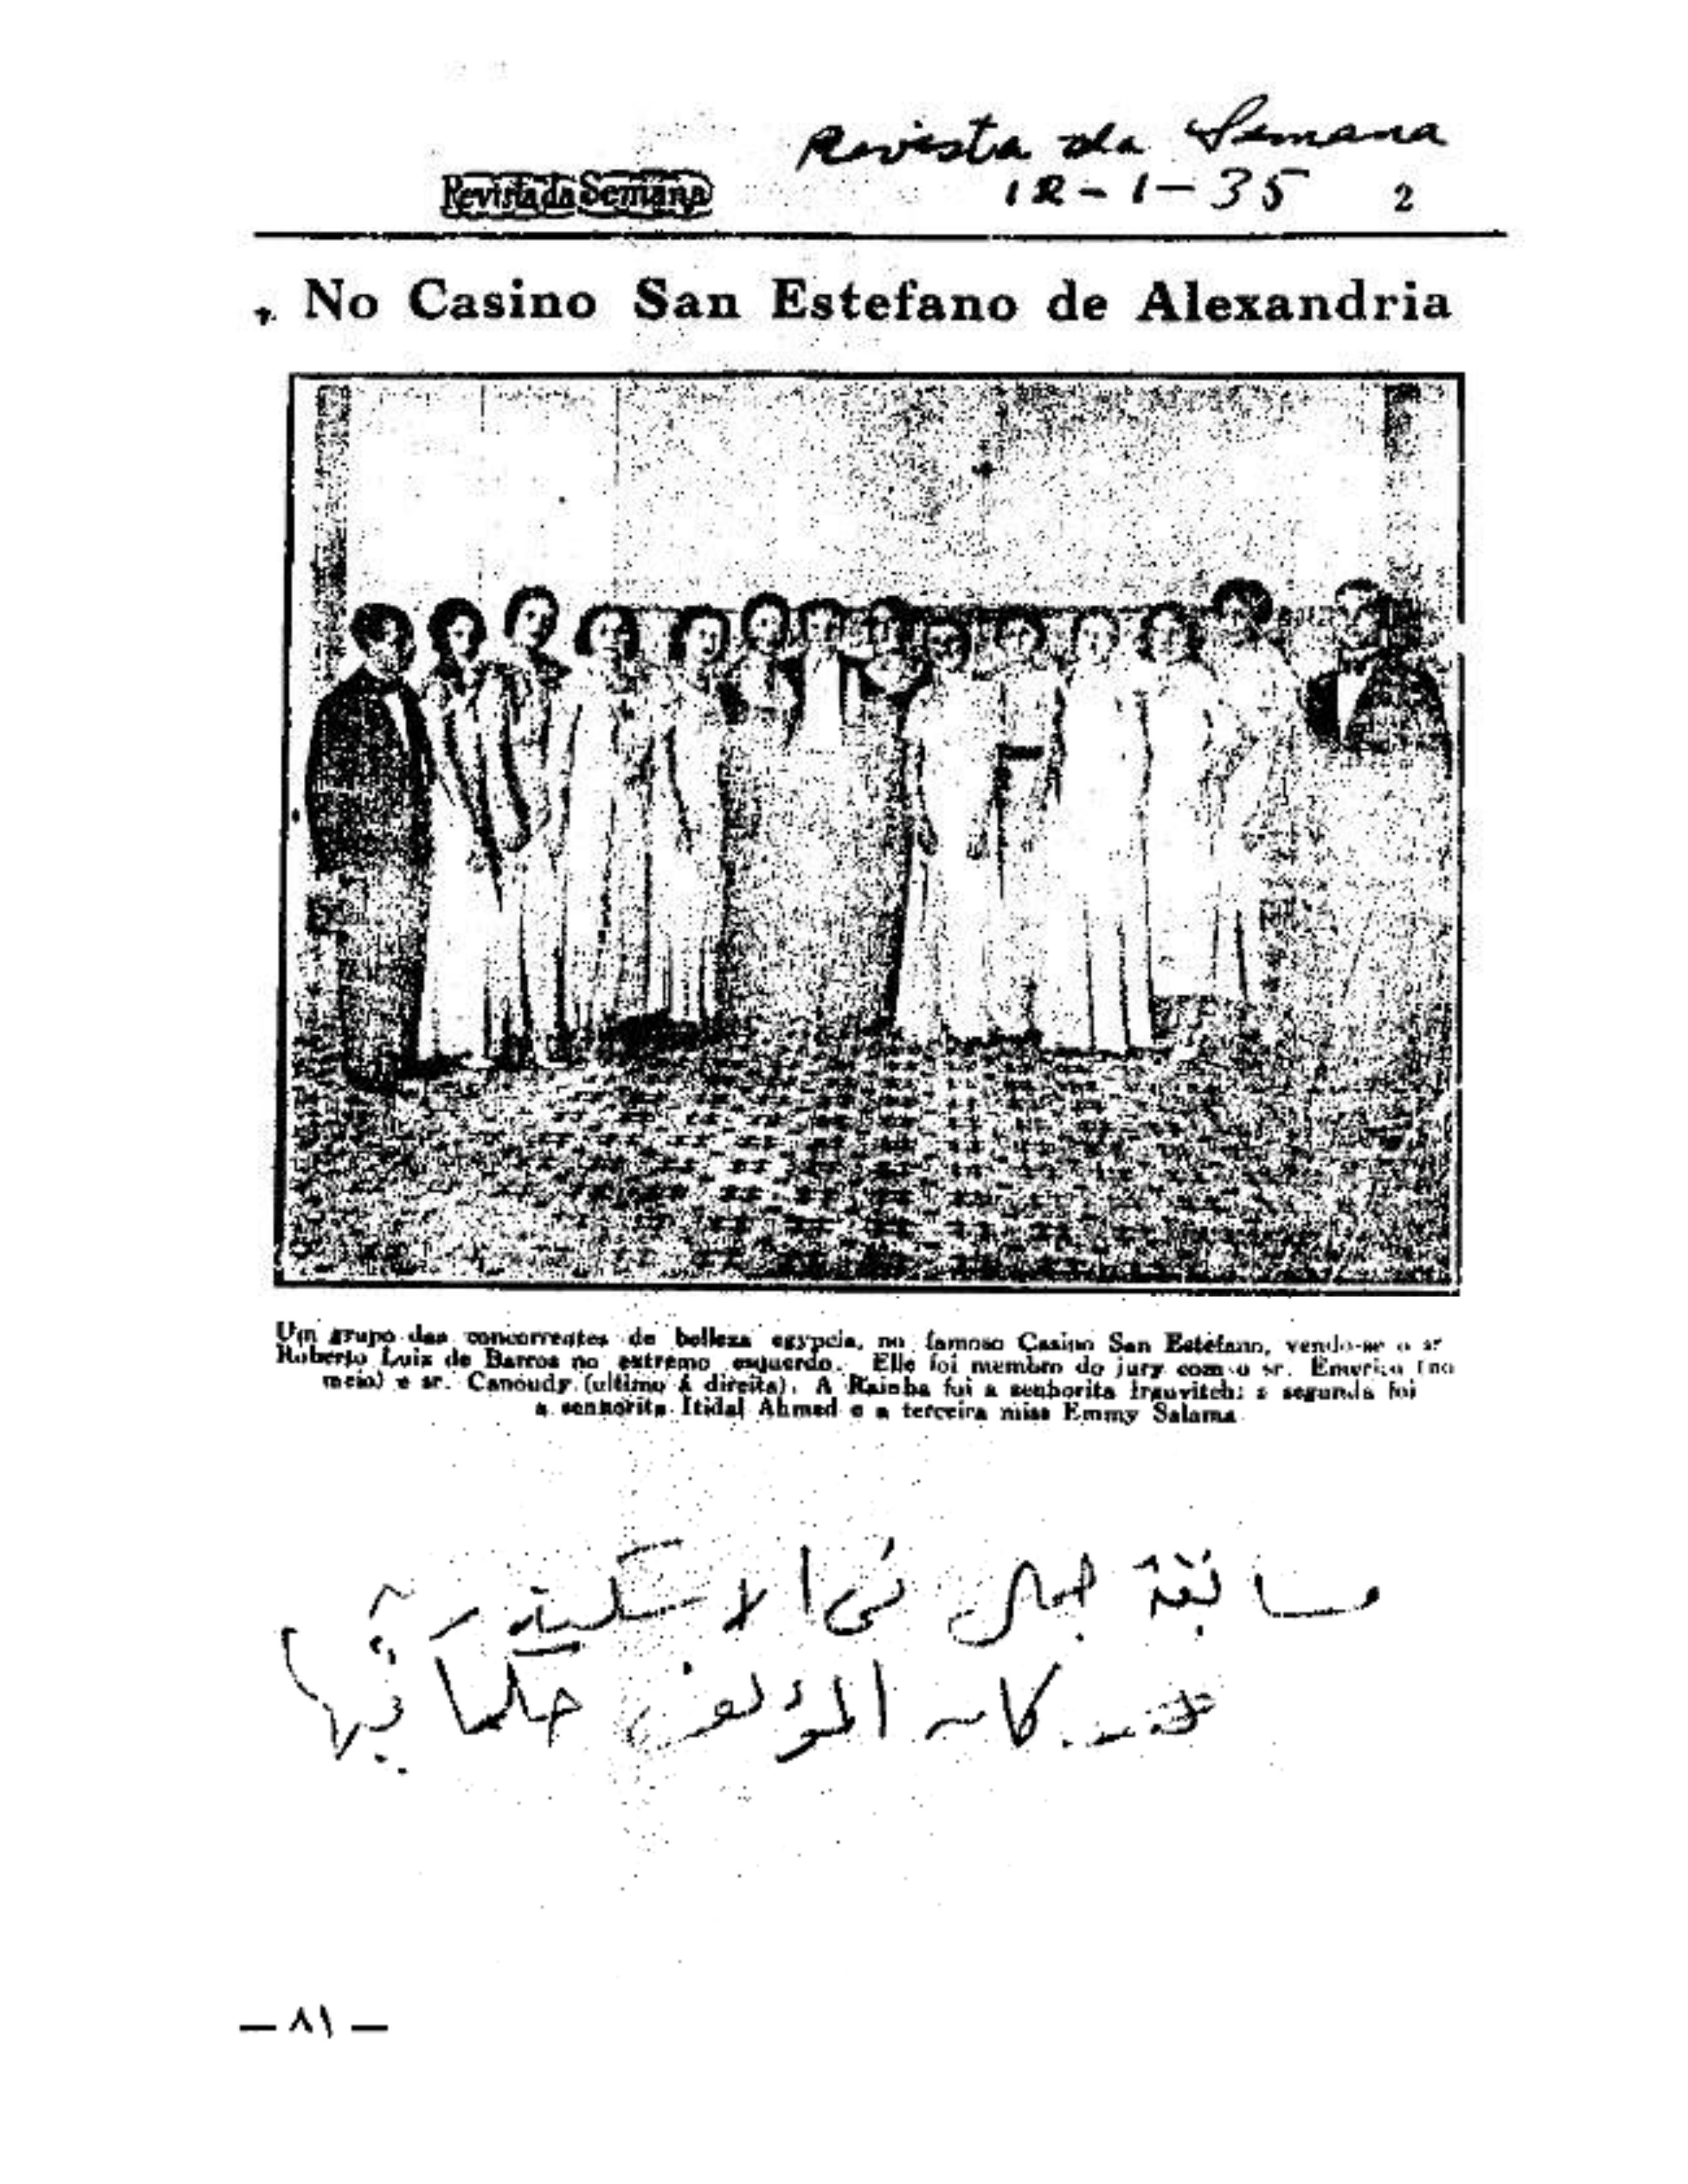 Revista da Semana
Revista da Semana
12-1-35
2
No Casino San Estefano de Alexandria
Um grupo das concorrentes de belleza egypcia, no famoso Casino San Estefano, vendo-se o sr
Roberto Luiz de Barros no extremo esquerdo. Elle foi membro do jury com o sr. Emerico (no
meio) e sr. Canoudy (ultimo á direita). A Rainha foi a senhorita Irauvitch; a segunda foi
a senhorita Itidal Ahmed e a terceira miss Emmy Salama
مسابقة جمال في الاسكندرية
كان المؤلف حكما فيها
— ٨١ —